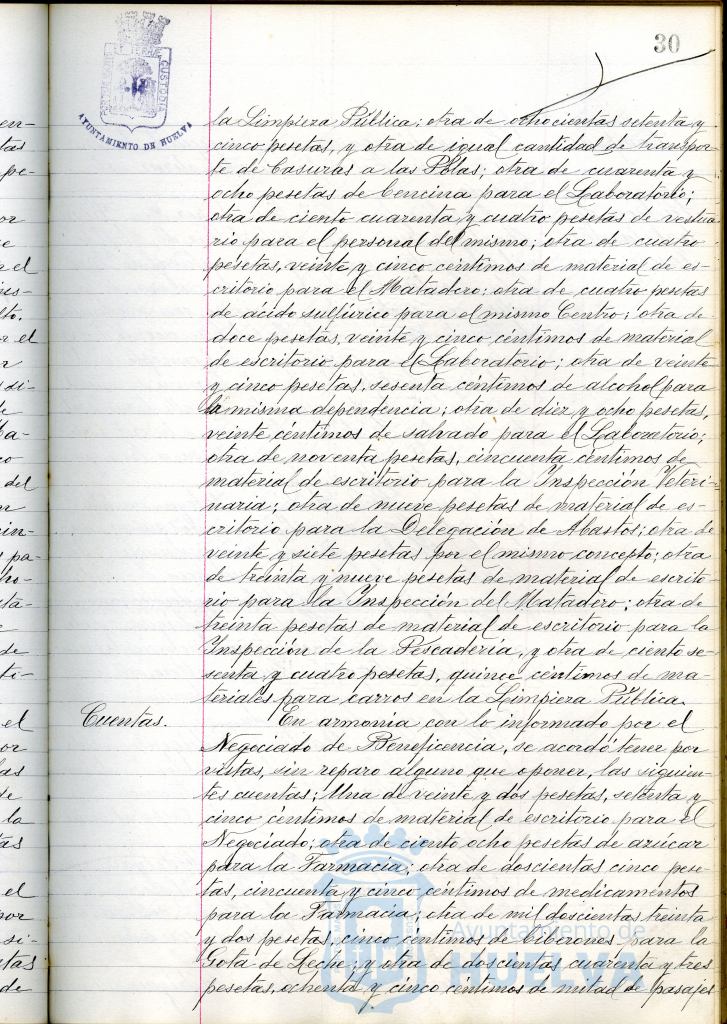 30
AYUNTAMIENTO DE HUELVA
CUSTODIA
la Limpieza Pública; otra de ochocientas setenta y
cinco pesetas, y otra de igual cantidad de transpor-
te de basuras a las Pblas; otra de cuarenta y
ocho pesetas de bencina para el Laboratorio;
otra de ciento cuarenta y cuatro pesetas de vestua
rio para el personal del mismo; otra de cuatro
pesetas, veinte y cinco céntimos de material de es-
critorio para el Matadero; otra de cuatro pesetas
de ácido sulfúrico para el mismo Centro; otra de
doce pesetas, veinte y cinco céntimos de material
de escritorio para el Laboratorio; otra de veinte
y cinco pesetas, sesenta céntimos de alcohol para
la misma dependencia; otra de diez y ocho pesetas,
veinte céntimos de salvado para el Laboratorio;
otra de noventa pesetas, cincuenta céntimos de
material de escritorio para la Inspección Veteri-
naria; otra de nueve pesetas de material de es-
critorio para la Delegación de Abastos; otra de
veinte y siete pesetas por el mismo concepto; otra
de treinta y nueve pesetas de material de escrito-
rio para la Inspección del Matadero; otra de
treinta pesetas de material de escritorio para la
Inspección de la Pescadería, y otra de ciento se-
senta y cuatro pesetas, quince céntimos de ma-
teriales para carros en la Limpieza Pública.
Cuentas.
En armonía con lo informado por el
Negociado de Beneficencia, se acordó tener por
vistas, sin reparo alguno que oponer, las siguien-
tes cuentas; Una de veinte y dos pesetas, setenta y
cinco céntimos de material de escritorio para el
Negociado; otra de ciento ocho pesetas de azúcar
para la Farmacia; otra de doscientas cinco pese-
tas, cincuenta y cinco céntimos de medicamentos
para la Farmacia; otra de mil doscientas treinta
y dos pesetas, cinco céntimos de biberones para la
Gota de Leche; y otra de doscientas cuarenta y tres
pesetas, ochenta y cinco céntimos de mitad de pasajes
Ayuntamiento de
HUELVA